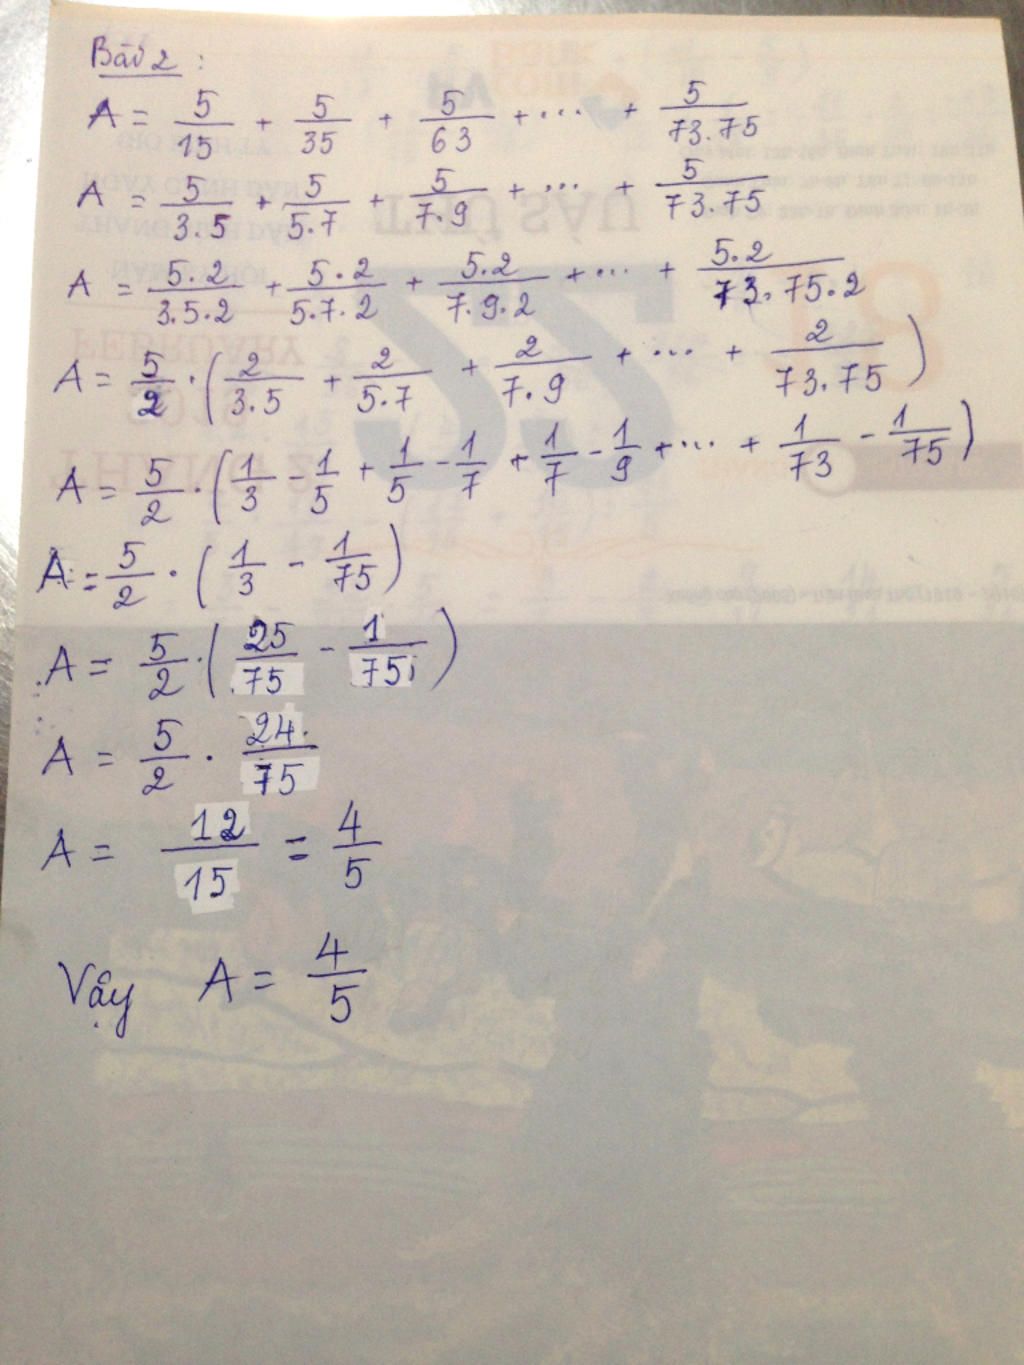 Bài 2 :
A = 5/15 + 5/35 + 5/63 + ... + 5/73.75
A = 5/3.5 + 5/5.7 + 5/7.9 + ... + 5/73.75
A = 5.2/3.5.2 + 5.2/5.7.2 + 5.2/7.9.2 + ... + 5.2/73.75.2
A = 5/2 . (2/3.5 + 2/5.7 + 2/7.9 + ... + 2/73.75)
A = 5/2 . (1/3 - 1/5 + 1/5 - 1/7 + 1/7 - 1/9 + ... + 1/73 - 1/75)
A = 5/2 . (1/3 - 1/75)
A = 5/2 . (25/75 - 1/75)
A = 5/2 . 24/75
A = 12/15 = 4/5
Vậy A = 4/5